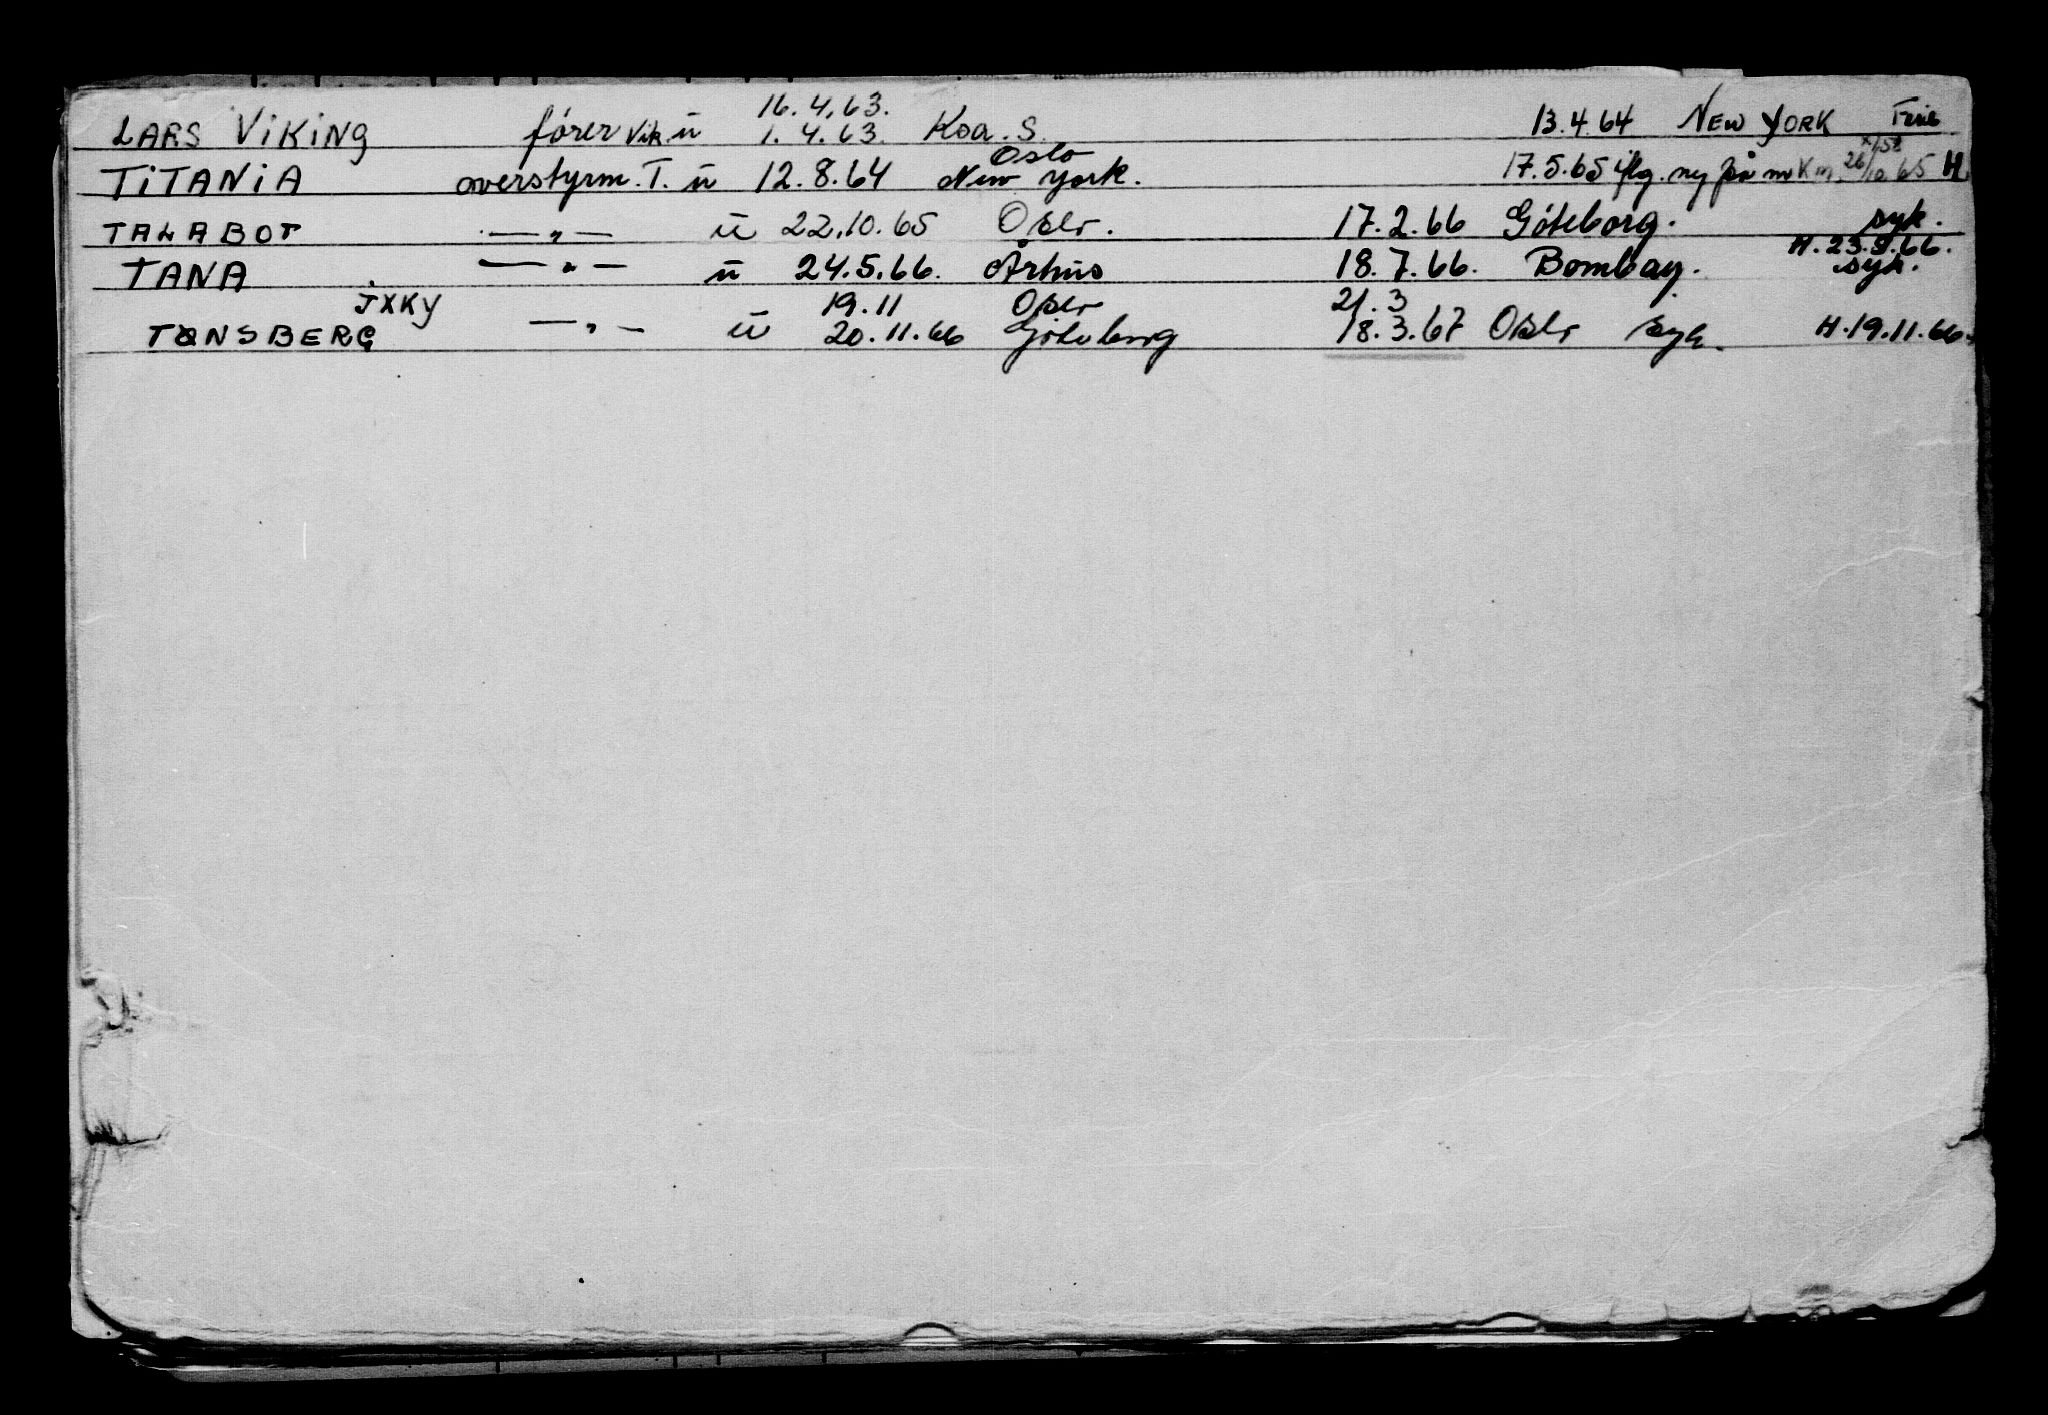 16.4.63.
LARS ViKiNG fórer Vik. ū 1.4.63. Koa. S. 13.4.64 NEW YORK
Oslo
TiTANiA overstyrm. T. ū 12.8.64 New York. 17.5.65 iflg. ny på m Km. 26/10 65 H
TALABOT —„— ū 22.10.65 Oslo. 17.2.66 Göteborg. syk.
H. 23.5.66.
TANA —„— ū 24.5.66. Århus 18.7.66. Bombay. syk.
JXKY 19.11 Oslo 21.3
TØNSBERG —„— ū 20.11.66 Göteborg 18.3.67 Oslo syk. H.19.11.66